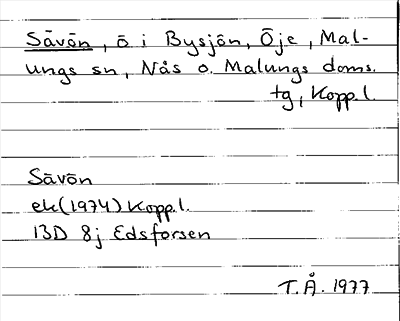 Sävön, ö i Bysjön, Öje, Mal-
ungs sn, Nås o. Malungs doms.
tg, Kopp.l.
Sävön
ek (1974) Kopp.l.
13D 8j Edsforsen
T.Å. 1977